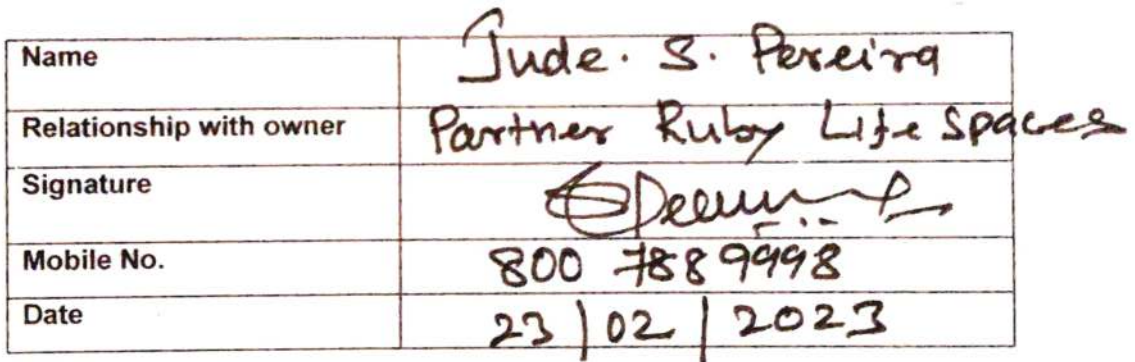 Name Jude. S. Pereira
Relationship with owner Partner Ruby Life Spaces
Signature
Mobile No. 800 7889998
Date 23/02/2023